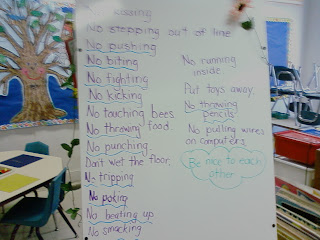 No stepping out of line
No pushing
No biting
No fighting
No kicking
No touching bees
No throwing food.
No punching
Don't wet the floor.
No tripping
No poking
No beating up
No smacking
No running
inside
Put toys away.
No throwing
pencils
No pulling wires
on computers
Be nice to each
other